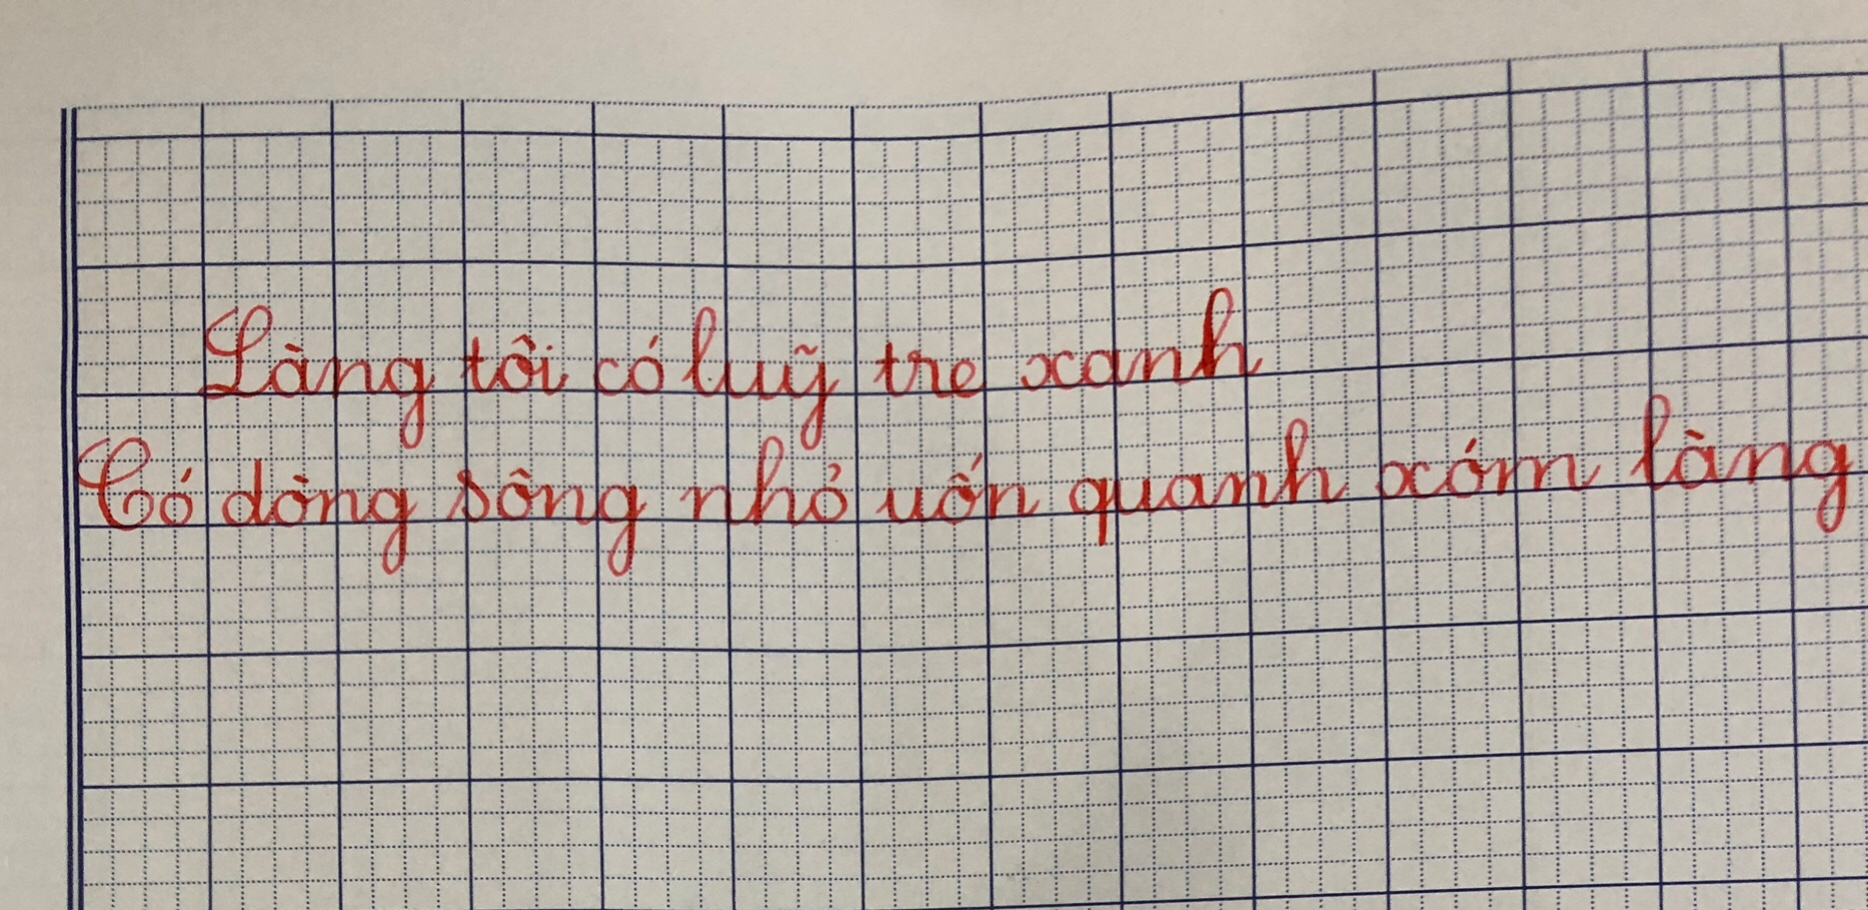 Làng tôi có luỹ tre xanh
Có dòng sông nhỏ uốn quanh xóm làng